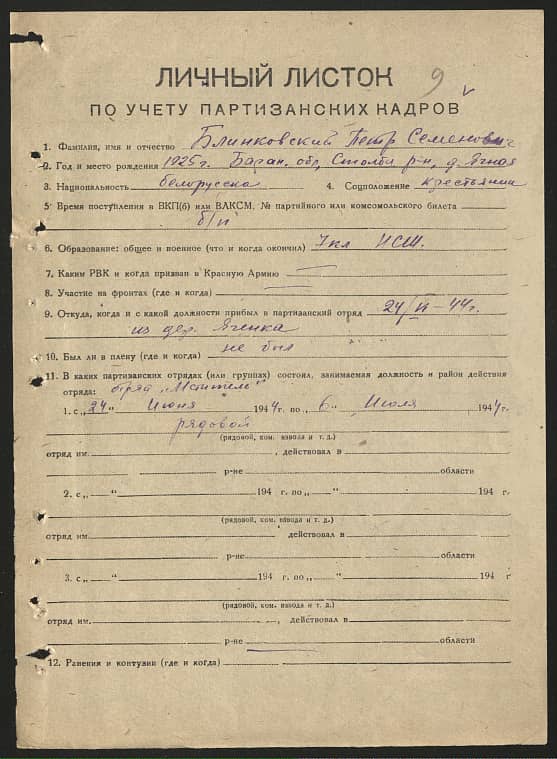 9
ЛИЧНЫЙ ЛИСТОК
ПО УЧЕТУ ПАРТИЗАНСКИХ КАДРОВ
1. Фамилия, имя и отчество Блинковский Петр Семенович
2. Год и место рождения 1925 г. Баран. обл, Столбц р-н, д.
3. Национальность белорусска 4. Соцположение крестьянин
5. Время поступления в ВКП(б) или ВЛКСМ, № партийного или комсомольского билета
б/п
6. Образование: общее и военное (что и когда окончил) 7 кл НСШ.
7. Каким РВК и когда призван в Красную Армию
8. Участие на фронтах (где и когда)
9. Откуда, когда и с какой должности прибыл в партизанский отряд 24/VI-44 г.
из дер.
10. Был ли в плену (где и когда) не был
11. В каких партизанских отрядах (или группах) состоял, занимаемая должность и район действия
отряда: отряд „Мститель"
1. с „24" Июня 1944 г. по „6" Июля 1944 г.
рядовой
(рядовой, ком. взвода и т. д.)
отряд им. , действовал в
р-не области
2. с „ " 194 г. по „ " 194 г.
(рядовой, ком. взвода и т. д.)
отряд им. , действовал в
р-не области
3. с „ " 194 г. по „ " 194 г
(рядовой, ком. взвода и т. д.)
отряд им. , действовал в
р-не области
12. Ранения и контузии (где и когда)